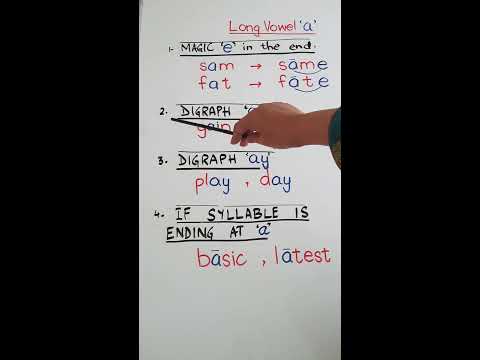 Long Vowel 'a'
1- MAGIC 'e' in the end.
sam → sāme
fat → fāte
2. DIGRAPH
gain
3. DIGRAPH 'ay'
play , day
4. IF SYLLABLE IS
ENDING AT 'a'
bāsic , lātest